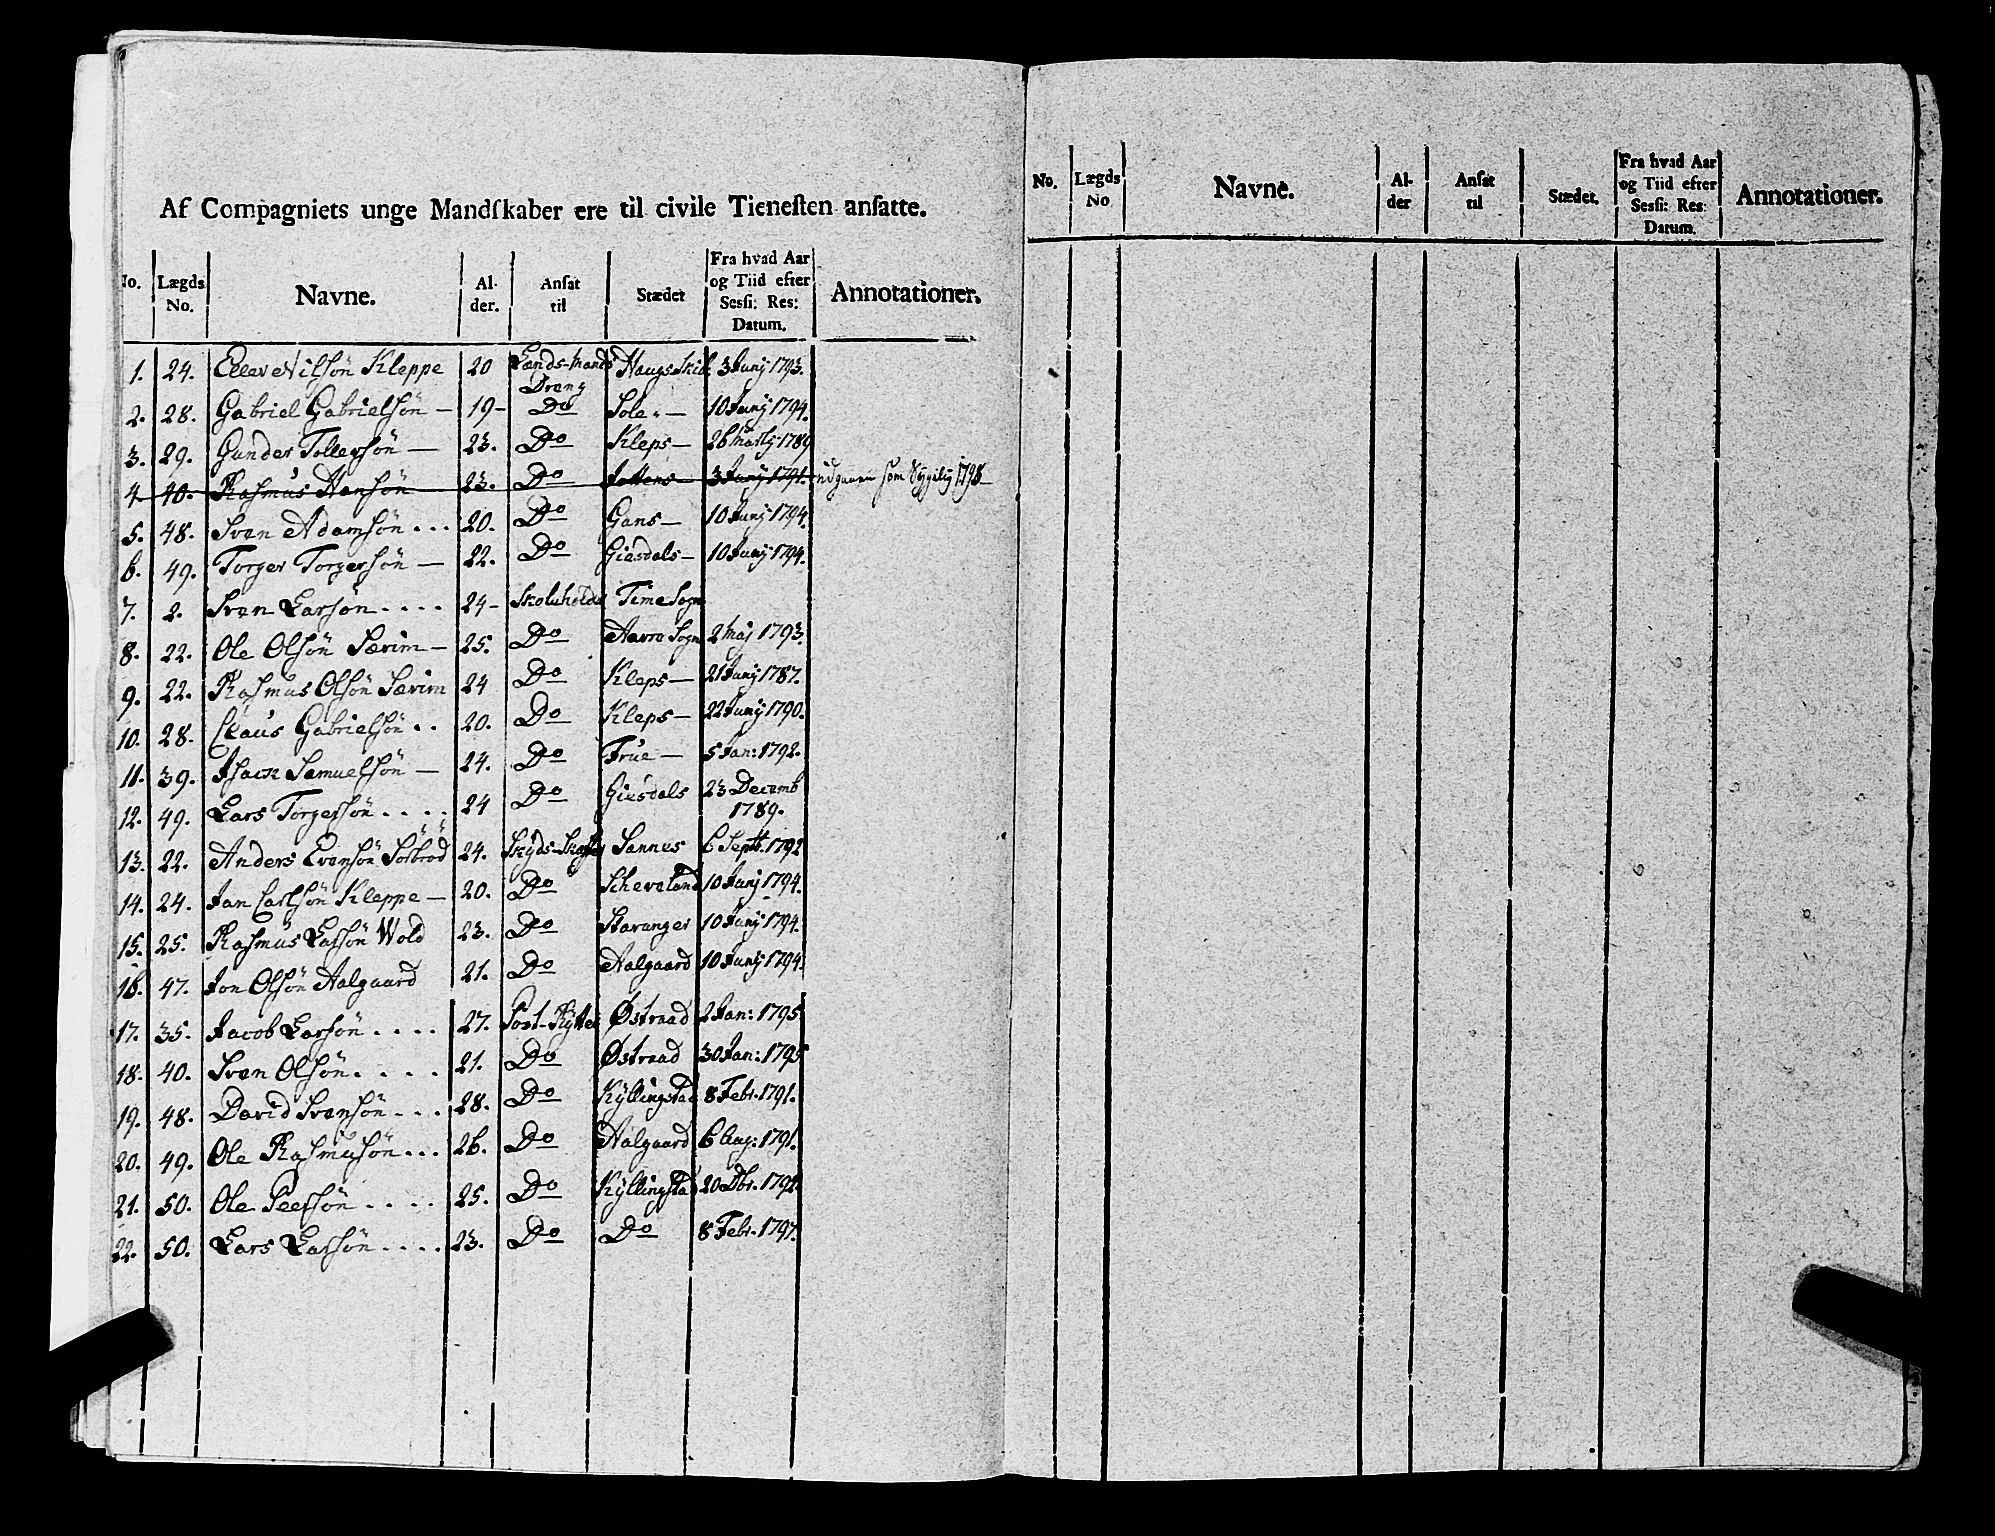 Af Compagniets unge Mandſkaber ere til civile Tieneſten anſatte.
No. Lægds No. Navne. Al- der. Anſat til Stædet Fra hvad Aar og Tiid efter Sesſi: Res: Datum. Annotationer.
1. 24. Ellev Nilsön Kleppe 20 Lends-Mands Dreng Haugs Skib 3 Junij 1793.
2. 28. Gabriel Gabrielsön — 19 - Do Sole. — 10 Junij 1794.
3. 29. Gunder Tollefsön — 23. Do Kleps — 26 Martij 1789
4 40. Rasmus Hansön 23. Do 3 Junij 1791. udgaaen som Sygelig 1795
5. 48. Sven Adamsön ... 20. Do Gans — 10 Junij 1794.
6. 49. Torger Torgersön — 22. Do Giesdals — 10 Junij 1794.
7. 2. Sven Larsön .... 24 - Skoleholder Time Sogn
8. 22. Ole Olsön Særim — 25. Do Sogn 2 Maj 1793.
9. 22. Rasmus Olsön Særim 24 Do Kleps — 21 Junij 1787.
10. 28. Claus Gabrielsön .. 20. Do Kleps — 22 Junij 1790.
11. 39. Isack Samuelsön — 24. Do Frue — 5 Jan: 1792.
12. 49. Lars Torgersön .... 24 Do Giesdals 23 Decemb 1789.
13. 22. Anders Evensön 24. Skyds-Skaffer Sannes 6 Septb. 1792
14. 24. Jan Carlsön Kleppe — 20. Do Scheveland 10 Junij 1794.
15. 25. Rasmus Larsön Wold 23. Do Stavanger 10 Junij 1794.
16. 47. Jon Olsön Aalgaard 21. Do Aalgaard 10 Junij 1794.
17. 35. Jacob Larsön .... 27. Post-Rytter Östraad 2 Jan: 1795
18. 40. Sven Olsön .... 21. Do Östraad 30 Jan: 1795
19. 48. David Svensön ... 28. Do Kyllingstad 8 Febr. 1791.
20. 49. Ole Rasmusön ... 26. Do Aalgaard 6 Aug: 1791.
21. 50. Ole Peersön .... 25. Do Kyllingstad 20 Dbr. 1792.
22. 50. Lars Larsön .... 23. Do Do 8 Febr. 1791.
No. Lægds No Navne. Al- der Anſat til Stædet. Fra hvad Aar og Tiid efter Sesſi: Res: Datum. Annotationer.